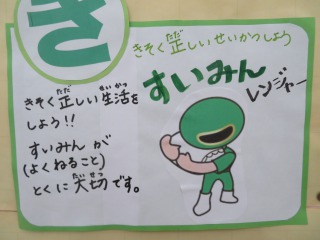 き
きそく正しいせいかつしよう
ただ
すいみん
レンジャー
ただ せいかつ
きそく正しい生活を
しよう!!
すいみん が
(よくねること)
たいせつ
とくに大切です。